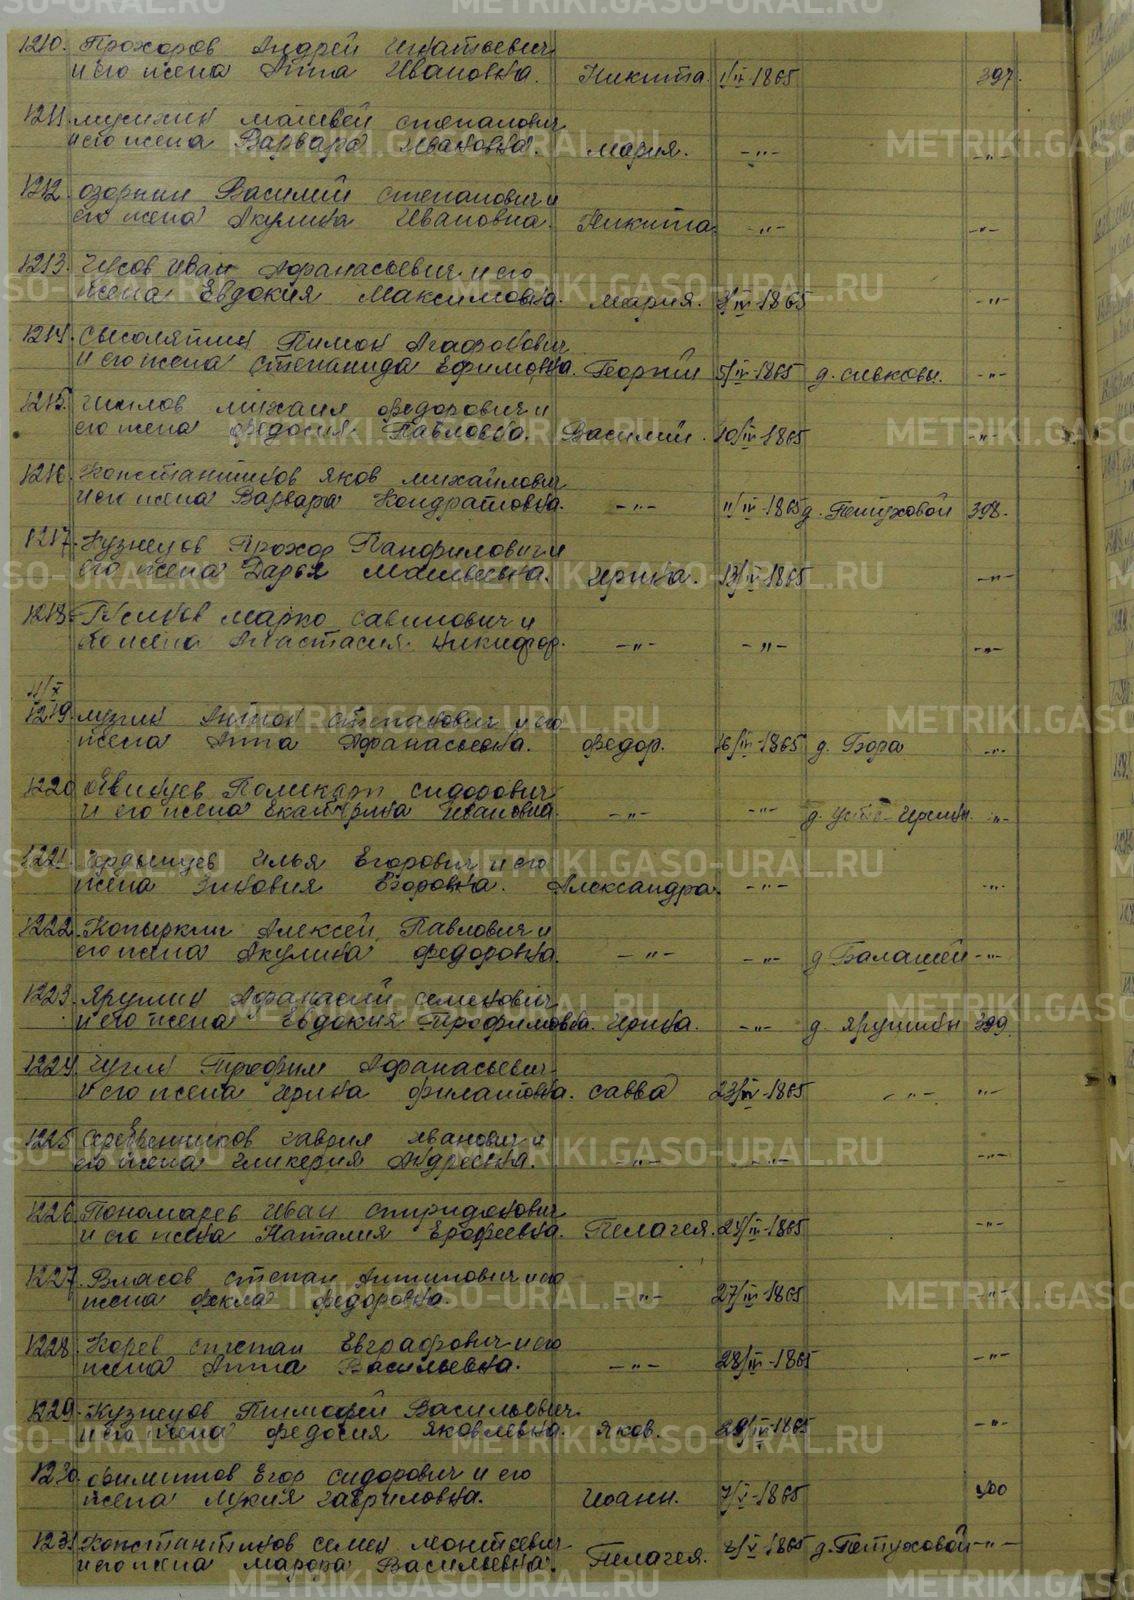 1210. Прохоров Андрей Игнатьевич
и его жена Анна Ивановна. Никита. 1/IV-1865 397.
1211. Мусихин Матвей Степанович
и его жена Варвара Ивановна. Мария. -"- -"-
1212. Озорнин Василий Степанович и
его жена Акулина Ивановна. Никита. -"- -"-
1213. Чусов Иван Афанасьевич и его
жена Евдокия Максимовна. Мария. 2/IV-1865 -"-
1214. Сысолятин Пимон Агафонович
и его жена Степанида Ефимовна. Георгий 5/IV-1865 д. Сивковы. -"-
1215. Михаил Федорович и
его жена Федосия Павловна. Василий. 10/IV-1865 -"-
1216. Константинов Яков Михайлович
и его жена Варвара Кондратовна. -"- 11/IV-1865 д. Петуховой 398.
1217. Кузнецов Прохор Панфилович и
его жена Дарья Матвеевна. Ирина. 13/IV-1865 -"-
1218. Марко Савинович и
его жена Анастасия Никифор. -"- -"- -"-
11/X
1219. Антон Степанович и его
жена Анна Афанасьевна. Федор. 16/IV-1865 д. Бора -"-
1220. Поликарп Сидорович
и его жена Екатерина Ивановна. -"- -"- д. Усть-Иргины. -"-
1221. Илья Егорович и его
жена Зиновия Егоровна. Александра. -"- -"-
1222. Копыркин Алексей Павлович и
его жена Акулина Федоровна. -"- -"- д. Балашей -"-
1223. Ярушин Афанасий Семенович
и его жена Евдокия Трофимовна. Ирина. -"- д. Ярушины 399.
1224. Чугин Трофим Афанасьевич
и его жена Ирина Филатовна. Савва 23/IV-1865 -"- -"-
1225. Серебренников Гаврил Иванович и
его жена Гликерия Андреевна. -"- -"- -"-
1226. Пономарев Иван Спиридонович
и его жена Наталия Ерофеевна. Пелагея. 24/IV-1865 -"-
1227. Власов Степан Антипович и его
жена Фекла Федоровна. -"- 27/IV-1865 -"-
1228. Корев Степан Евграфович и его
жена Анна Васильевна. -"- 28/IV-1865 -"-
1229. Кузнецов Тимофей Васильевич
и его жена Федосия Яковлевна. Яков. 29/IV-1865 -"-
1230. Филиппов Егор Сидорович и его
жена Лукия Гавриловна. Иоанн. 7/V-1865 400
1231. Константинов Семен Моисеевич
и его жена Марфа Васильевна. Пелагея. 8/V-1865 д. Петуховой -"-
METRIKI.GASO-URAL.RU